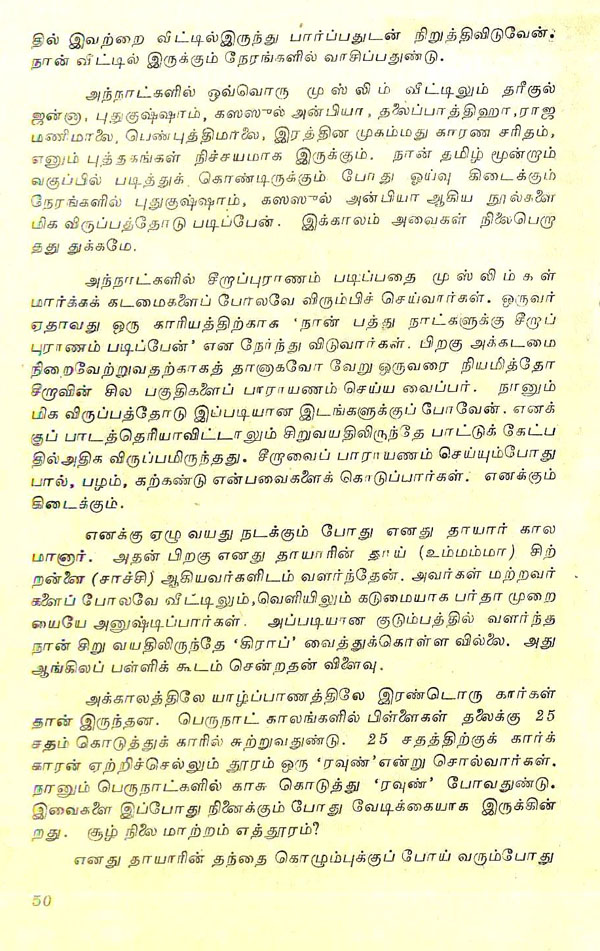 தில் இவற்றை வீட்டில்இருந்து பார்ப்பதுடன் நிறுத்திவிடுவேன்.
நான் வீட்டில் இருக்கும் நேரங்களில் வாசிப்பதுண்டு.
அந்நாட்களில் ஒவ்வொரு முஸ்லிம் வீட்டிலும் தரீகுல்
ஜன்னா, புதுகுஷ்ஷாம், கஸஸுல் அன்பியா, தலைப்பாத்திஹா,ராஜ
மணிமாலை, பெண்புத்திமாலை, இரத்தின முகம்மது காரண சரிதம்,
எனும் புத்தகங்கள் நிச்சயமாக இருக்கும். நான் தமிழ் மூன்றாம்
வகுப்பில் படித்துக் கொண்டிருக்கும் போது ஓய்வு கிடைக்கும்
நேரங்களில் புதுகுஷ்ஷாம், கஸஸுல் அன்பியா ஆகிய நூல்களை
மிக விருப்பத்தோடு படிப்பேன். இக்காலம் அவைகள் நிலைபெறு
தது துக்கமே.
அந்நாட்களில் சீறாப்புராணம் படிப்பதை முஸ்லிம்கள்
மார்க்கக் கடமைகளைப் போலவே விரும்பிச் செய்வார்கள். ஒருவர்
ஏதாவது ஒரு காரியத்திற்காக ‘நான் பத்து நாட்களுக்கு சீறாப்
புராணம் படிப்பேன்’ என நேர்ந்து விடுவார்கள். பிறகு அக்கடமை
நிறைவேற்றுவதற்காகத் தானாகவோ வேறு ஒருவரை நியமித்தோ
சீறாவின் சில பகுதிகளைப் பாராயணம் செய்ய வைப்பர். நானும்
மிக விருப்பத்தோடு இப்படியான இடங்களுக்குப் போவேன். எனக்
குப் பாடத்தெரியாவிட்டாலும் சிறுவயதிலிருந்தே பாட்டுக் கேட்ப
தில்அதிக விருப்பமிருந்தது. சீறாவைப் பாராயணம் செய்யும்போது
பால், பழம், கற்கண்டு என்பவைகளைக் கொடுப்பார்கள். எனக்கும்
கிடைக்கும்.
எனக்கு ஏழு வயது நடக்கும் போது எனது தாயார் கால
மானார். அதன் பிறகு எனது தாயாரின் தாய் (உம்மம்மா) சிற்
றன்னை (சாச்சி) ஆகியவர்களிடம் வளர்ந்தேன். அவர்கள் மற்றவர்
களைப் போலவே வீட்டிலும்,வெளியிலும் கடுமையாக பர்தா முறை
யையே அனுஷ்டிப்பார்கள். அப்படியான குடும்பத்தில் வளர்ந்த
நான் சிறு வயதிலிருந்தே ‘கிராப்’ வைத்துக்கொள்ள வில்லை. அது
ஆங்கிலப் பள்ளிக் கூடம் சென்றதன் விளைவு.
அக்காலத்திலே யாழ்ப்பாணத்திலே இரண்டொரு கார்கள்
தான் இருந்தன. பெருநாட் காலங்களில் பிள்ளைகள் தலைக்கு 25
சதம் கொடுத்துக் காரில் சுற்றுவதுண்டு. 25 சதத்திற்குக் கார்க்
காரன் ஏற்றிச்செல்லும் தூரம் ஒரு ‘ரவுண்’என்று சொல்வார்கள்.
நானும் பெருநாட்களில் காசு கொடுத்து ‘ரவுண்’ போவதுண்டு.
இவைகளை இப்போது நினைக்கும் போது வேடிக்கையாக இருக்கின்
றது. சூழ் நிலை மாற்றம் எத்தூரம்?
எனது தாயாரின் தந்தை கொழும்புக்குப் போய் வரும்போது
50